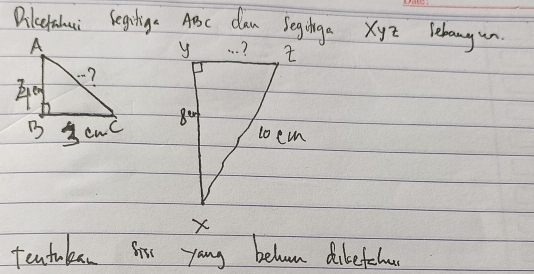 Diketahui Segitiga ABC dan Segitiga XYZ Sebangun.
A
...?
4 cm
B 3 cm C
Y ...? Z
8 cm
10 cm
X
Tentukan Sisi yang belum diketahui